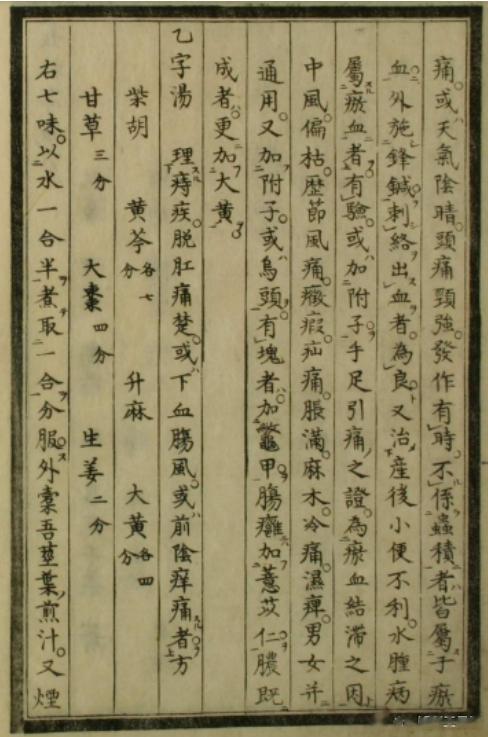 痛。或天氣陰晴。頭痛頸強。發作有時。不係蟲積者。皆屬于瘀
血。外施鋒鍼。刺絡出血者。為良。又治産後小便不利。水腫病
屬瘀血者。有驗。或加附子。手足引痛之證。為瘀血結滞之因
中風。偏枯。歴節風痛。癥瘕。疝痛。脹滿。麻木。冷痛。濕痺。男女并
通用。又加附子。或烏頭。有塊者。加鼈甲。腸癰加薏苡仁。膿既
成者。更加大黄。
乙字湯 理痔疾脱肛痛楚。或下血腸風。或前陰痒痛者。方
柴胡 黄芩各七分 升麻 大黄各四分
甘草三分 大棗四分 生姜二分
右七味。以水一合半。煮取一合。分服。外橐吾莖葉煎汁。又煙